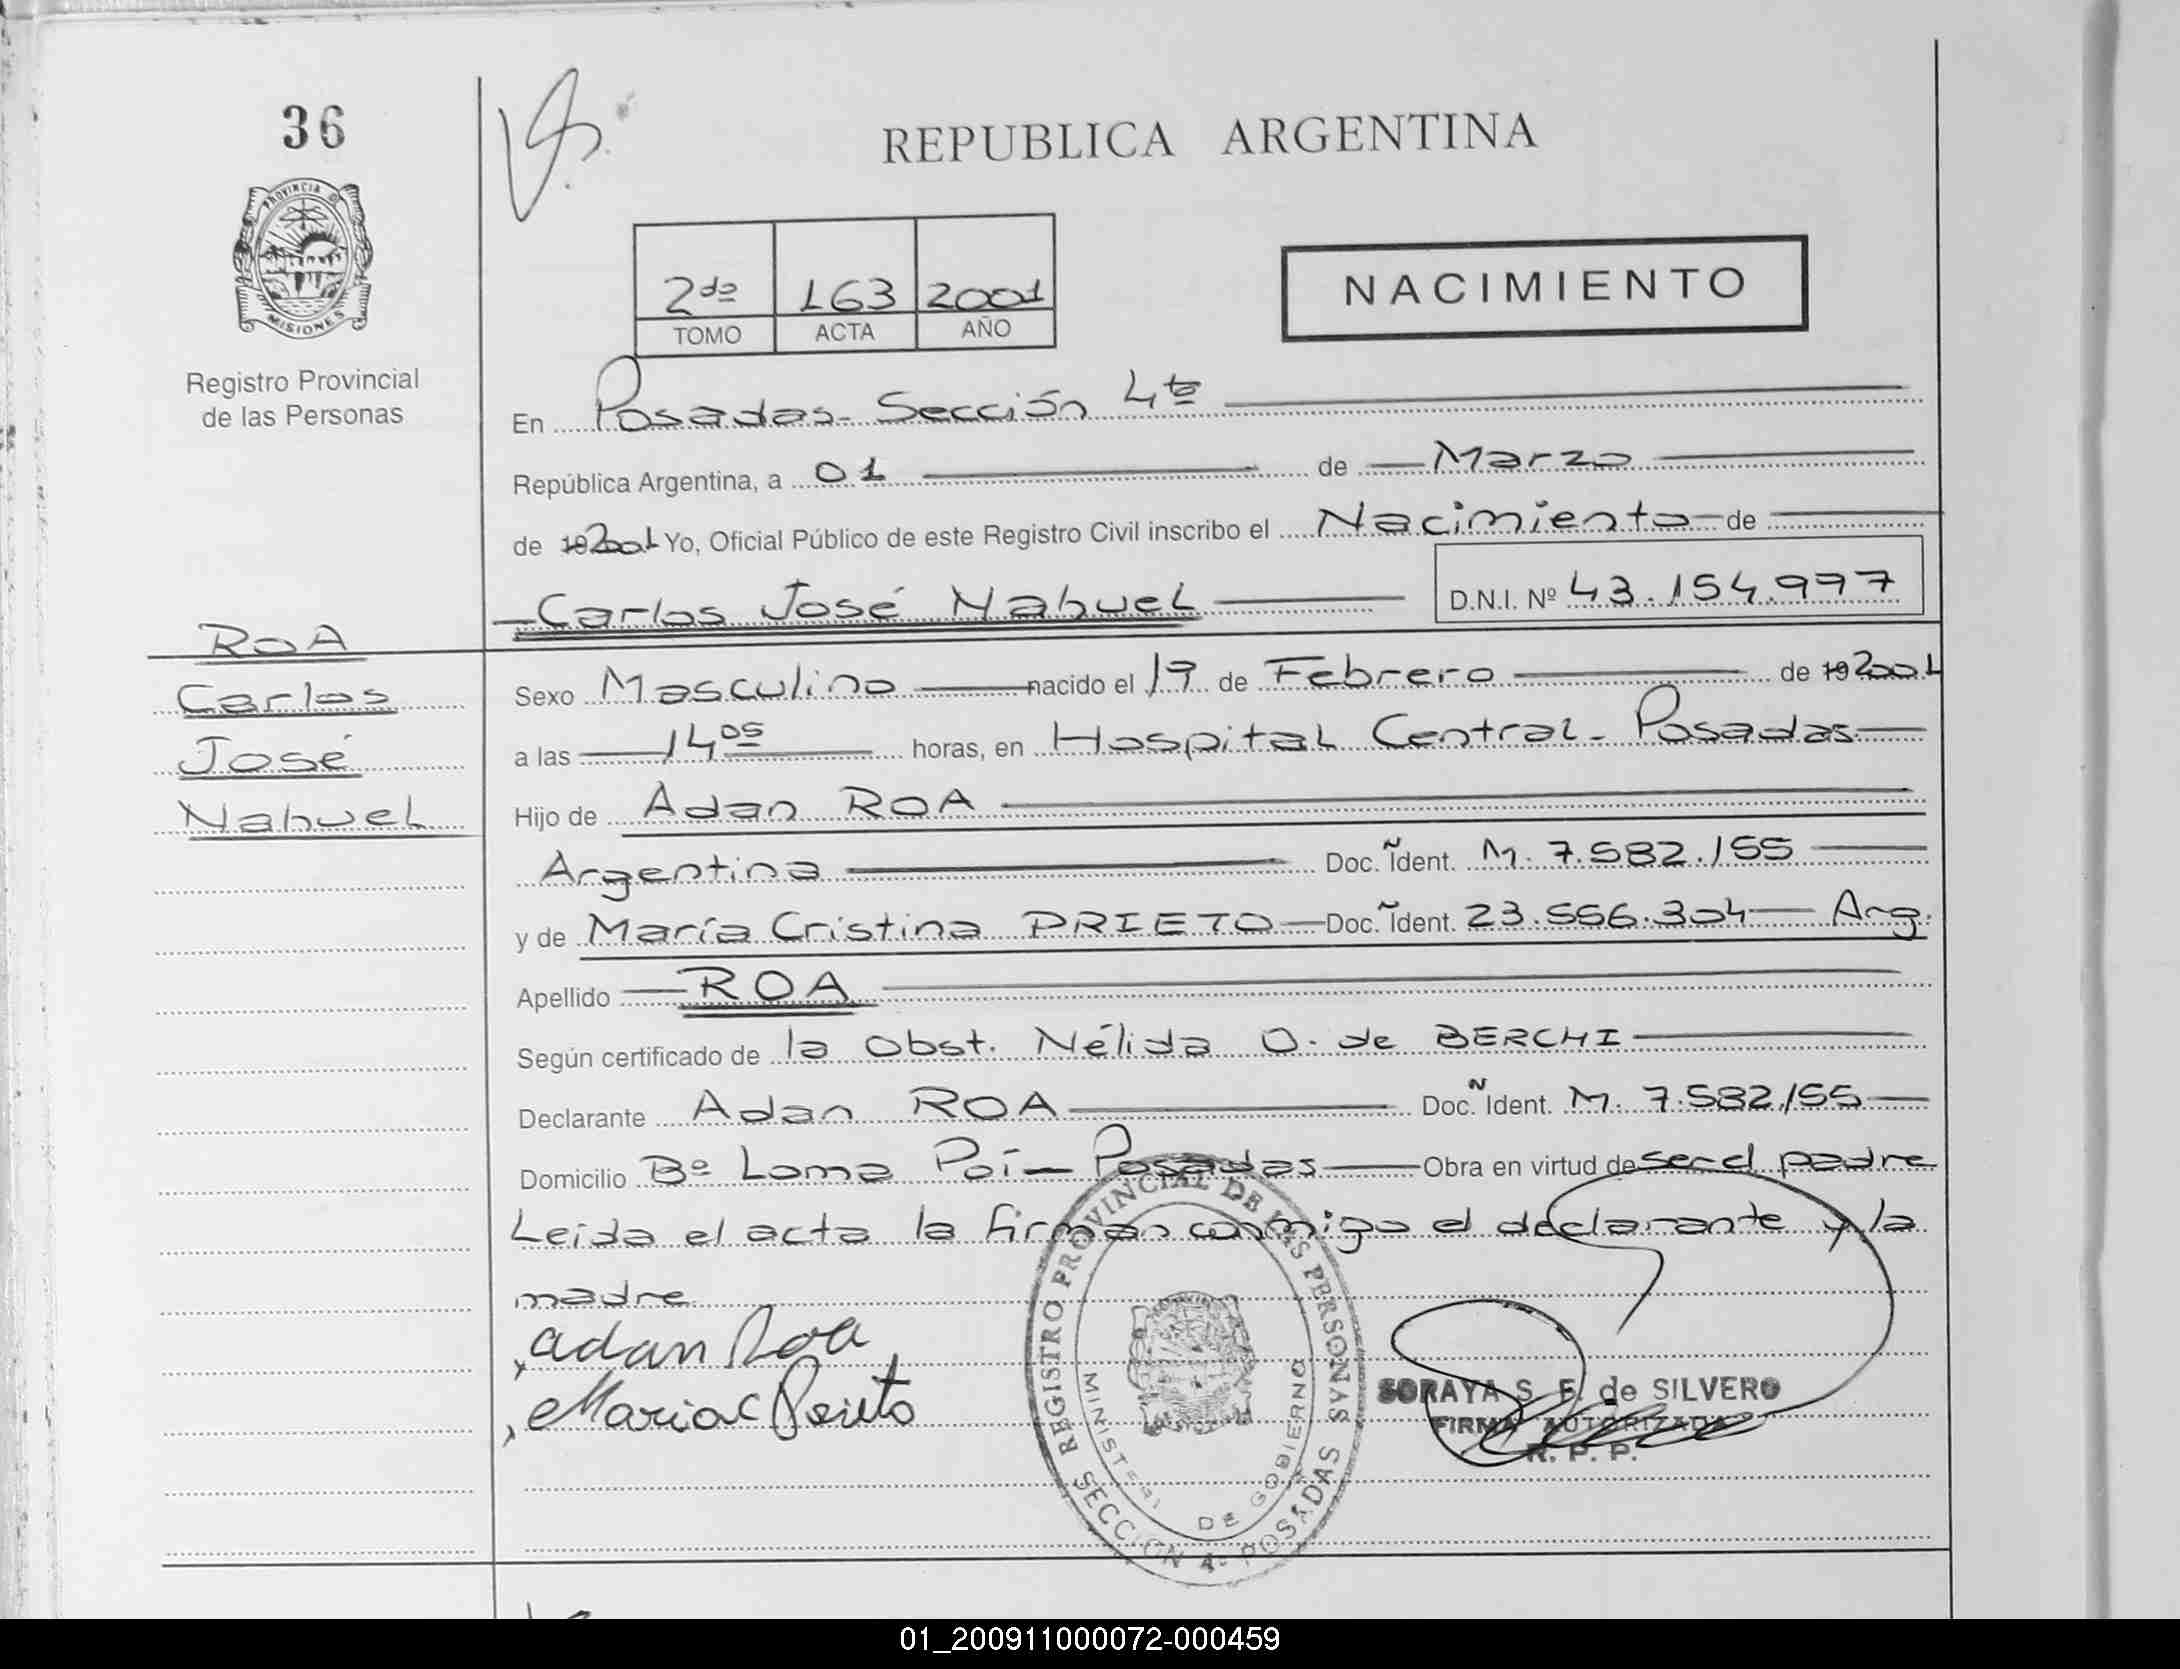 36
REPUBLICA ARGENTINA
PROVINCIA D MISIONES
2da 163 2001
TOMO ACTA AÑO
NACIMIENTO
Registro Provincial
de las Personas
En Posadas - Sección 4ta
República Argentina, a 01 de Marzo
de 19 2001 Yo, Oficial Público de este Registro Civil inscribo el Nacimiento de
Carlos José Nahuel D.N.I. Nº 43.154.997
ROA
Carlos
José
Nahuel
Sexo Masculino nacido el 19 de Febrero de 19 2001
a las 14 05 horas, en Hospital Central - Posadas
Hijo de Adan ROA
Argentina Doc. Ñ Ident. M. 7.582.155
y de María Cristina PRIETO Doc. Ñ Ident. 23.556.304 Arg.
Apellido ROA
Según certificado de la Obst. Nélida O. de BERCHI
Declarante Adan ROA Doc. Ñ Ident. M. 7.582.155
Domicilio Bº Loma Poí - Posadas Obra en virtud de ser el padre
Leida el acta la firman conmigo el declarante y la
madre
adan Roa
Maria C Prieto
REGISTRO PROVINCIAL DE LAS PERSONAS
MINISTERI DE GOBIERNO
SECCION 4- POSADAS MISIONES
SORAYA S. F. de SILVERO
FIRMA AUTORIZADA
R. P. P.
01_200911000072-000459